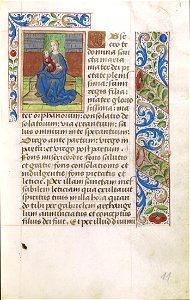 OBsecro
te do
mina san
cta maria
mater dei pi
etate pleni
ssima: sum
mi regis filia
mater glorio
sissima: ma
ter orphanorum: consolatio de
solatorum: via errantium: sa
lus omnium in te sperantium:
Virgo ante partum: virgo in
partu: et virgo post partum:
Fons misericordie fons salutis
et gratie: fons consolationis et
indulgentie fons pietatis et
leticie. Per illam sanctam inef
fabilem leticiam qua exultavit
spiritus tuus in illa hora quan
do tibi per gabrielem archange
lum annunciatus et conceptus
filius dei fuit. Et per illud divinu